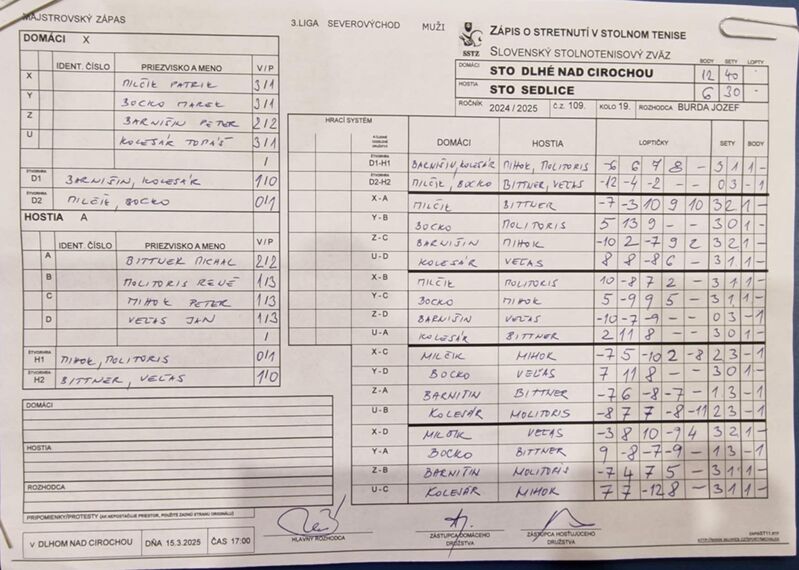 MAJSTROVSKÝ ZÁPAS
3.LIGA SEVEROVÝCHOD MUŽI
ZÁPIS O STRETNUTÍ V STOLNOM TENISE
SLOVENSKÝ STOLNOTENISOVÝ ZVÄZ
SSTZ
BODY SETY LOPTY
DOMÁCI STO DLHÉ NAD CIROCHOU 12 40 -
HOSTIA STO SEDLICE 6 30 -
ROČNÍK 2024 / 2025 č.z. 109. KOLO 19. ROZHODCA BURDA JOZEF
DOMÁCI X
IDENT. ČÍSLO PRIEZVISKO A MENO V/P
X MILČIK PATRIK 3/1
Y BOCKO MAREK 3/1
Z BARNIŠIN PETER 2/2
U KOLESÁR TOMÁŠ 3/1
/
ŠTVORHRA D1 BARNIŠIN, KOLESÁR 1/0
D2 MILČIK, BOCKO 0/1
HOSTIA A
IDENT. ČÍSLO PRIEZVISKO A MENO V/P
A BITTNER MICHAL 2/2
B MOLITORIS RENÉ 1/3
C MIHOK PETER 1/3
D VEĽAS JÁN 1/3
/
ŠTVORHRA H1 MIHOK, MOLITORIS 0/1
ŠTVORHRA H2 BITTNER, VEĽAS 1/0
HRACÍ SYSTÉM DOMÁCI HOSTIA LOPTIČKY SETY BODY
D1-H1 BARNIŠIN, KOLESÁR MIHOK, MOLITORIS -6 6 7 8 - 3 1 1 -
D2-H2 MILČIK, BOCKO BITTNER, VEĽAS -12 -4 -2 - - 0 3 - 1
X-A MILČIK BITTNER -7 -3 10 9 10 3 2 1 -
Y-B BOCKO MOLITORIS 5 13 9 - - 3 0 1 -
Z-C BARNIŠIN MIHOK -10 2 -7 9 2 3 2 1 -
U-D KOLESÁR VEĽAS 8 8 -8 6 - 3 1 1 -
X-B MILČIK MOLITORIS 10 -8 7 2 - 3 1 1 -
Y-C BOCKO MIHOK 5 -9 9 5 - 3 1 1 -
Z-D BARNIŠIN VEĽAS -10 -7 -9 - - 0 3 - 1
U-A KOLESÁR BITTNER 2 11 8 - - 3 0 1 -
X-C MILČIK MIHOK -7 5 -10 2 -8 2 3 - 1
Y-D BOCKO VEĽAS 7 11 8 - - 3 0 1 -
Z-A BARNIŠIN BITTNER -7 6 -8 -7 - 1 3 - 1
U-B KOLESÁR MOLITORIS -8 7 7 -8 -11 2 3 - 1
X-D MILČIK VEĽAS -3 8 10 -9 4 3 2 1 -
Y-A BOCKO BITTNER 9 -8 -7 -9 - 1 3 - 1
Z-B BARNIŠIN MOLITORIS -7 4 7 5 - 3 1 1 -
U-C KOLESÁR MIHOK 7 7 -12 8 - 3 1 1 -
DOMÁCI
HOSTIA
ROZHODCA
PRIPOMIENKY/PROTESTY (AK NEPOSTAČUJE PRIESTOR, POUŽITE ZADNÚ STRANU ORIGINÁLU)
V DLHOM NAD CIROCHOU DŇA 15.3.2025 ČAS 17:00
HLAVNÝ ROZHODCA
ZÁSTUPCA DOMÁCEHO DRUŽSTVA
ZÁSTUPCA HOSŤUJÚCEHO DRUŽSTVA